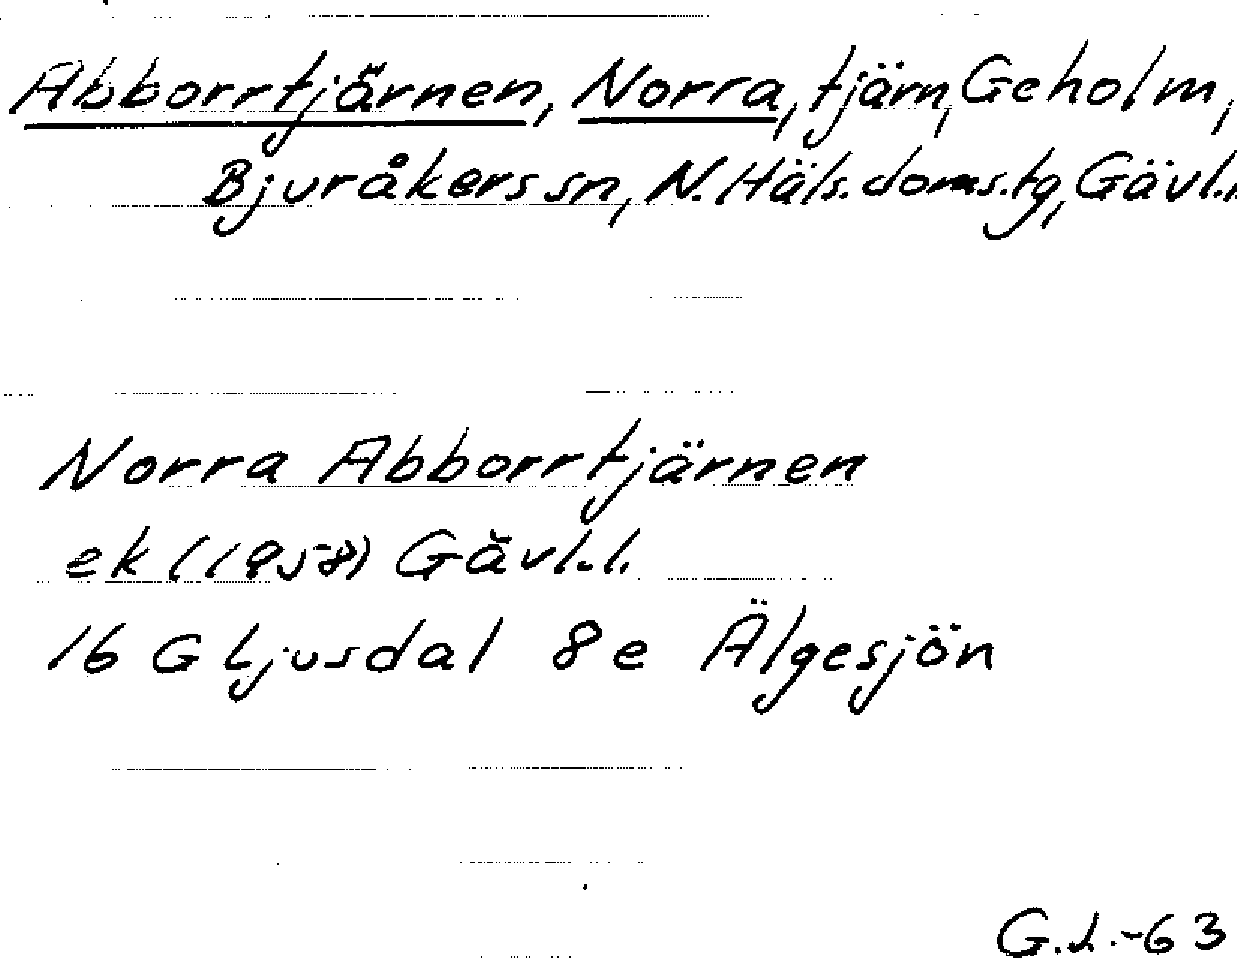 Abborrtjärnen, Norra, tjärn, Geholm,
Bjuråkers sn, N. Häls. doms. tg, Gävl. l.
Norra Abborrtjärnen
ek (1958) Gävl. l.
16 G Ljusdal 8e Älgesjön
G.L.-63